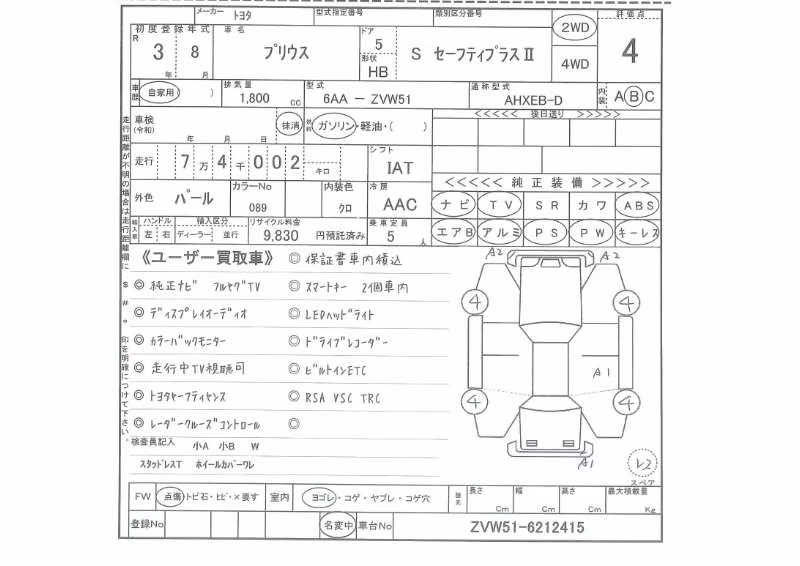 メーカー トヨタ 型式指定番号 類別区分番号 2WD 評価点
初度登録年式 車名 ドア
R 3 年 8 月 プリウス 5 S セーフティプラスⅡ 4
形状 HB 4WD
車歴 自家用( ) 排気量 1,800 cc 型式 6AA - ZVW51 通称型式 AHXEB-D 内装 A B C
車検 (令和) 年 月 日 抹消 燃料 ガソリン・軽油・( ) <<<<< 後日送り >>>>>
走行 7万4千002 キロ シフト IAT
<<<<< 純正装備 >>>>>
外色 パール カラーNo 089 内装色 クロ 冷房 AAC ナビ TV SR カワ ABS
輸入車 ハンドル 左 右 輸入区分 ディーラー 並行 リサイクル料金 9,830 円預託済み 乗車定員 5 人 エアB アルミ PS PW キーレス
走行距離が不明の場合は走行距離欄に$ #*印を明確につけて下さい。
《ユーザー買取車》 ◎ 保証書車内積込
◎ 純正ナビ フルセグTV ◎ スマートキー 2個車内
◎ ディスプレイオーディオ ◎ LEDヘッドライト
◎ カラーバックモニター ◎ ドライブレコーダー
◎ 走行中TV視聴可 ◎ ビルトインETC
◎ トヨタセーフティセンス ◎ RSA VSC TRC
◎ レーダークルーズコントロール ◎
検査員記入 小A 小B W
スタッドレスT ホイールカバーワレ
A2 A2
4 4
A1
4 4
A1
レ2
スペア
FW 点傷・トビ石・ヒビ・×要す 室内 ヨゴレ・コゲ・ヤブレ・コゲ穴 長さ Cm 幅 Cm 高さ Cm 最大積載量 Kg
登録No 名変中 車台No ZVW51-6212415